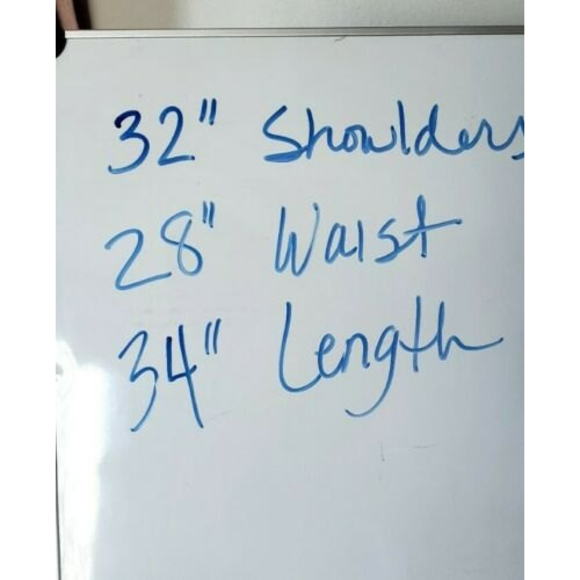 32" Shoulders
28" Waist
34" Length